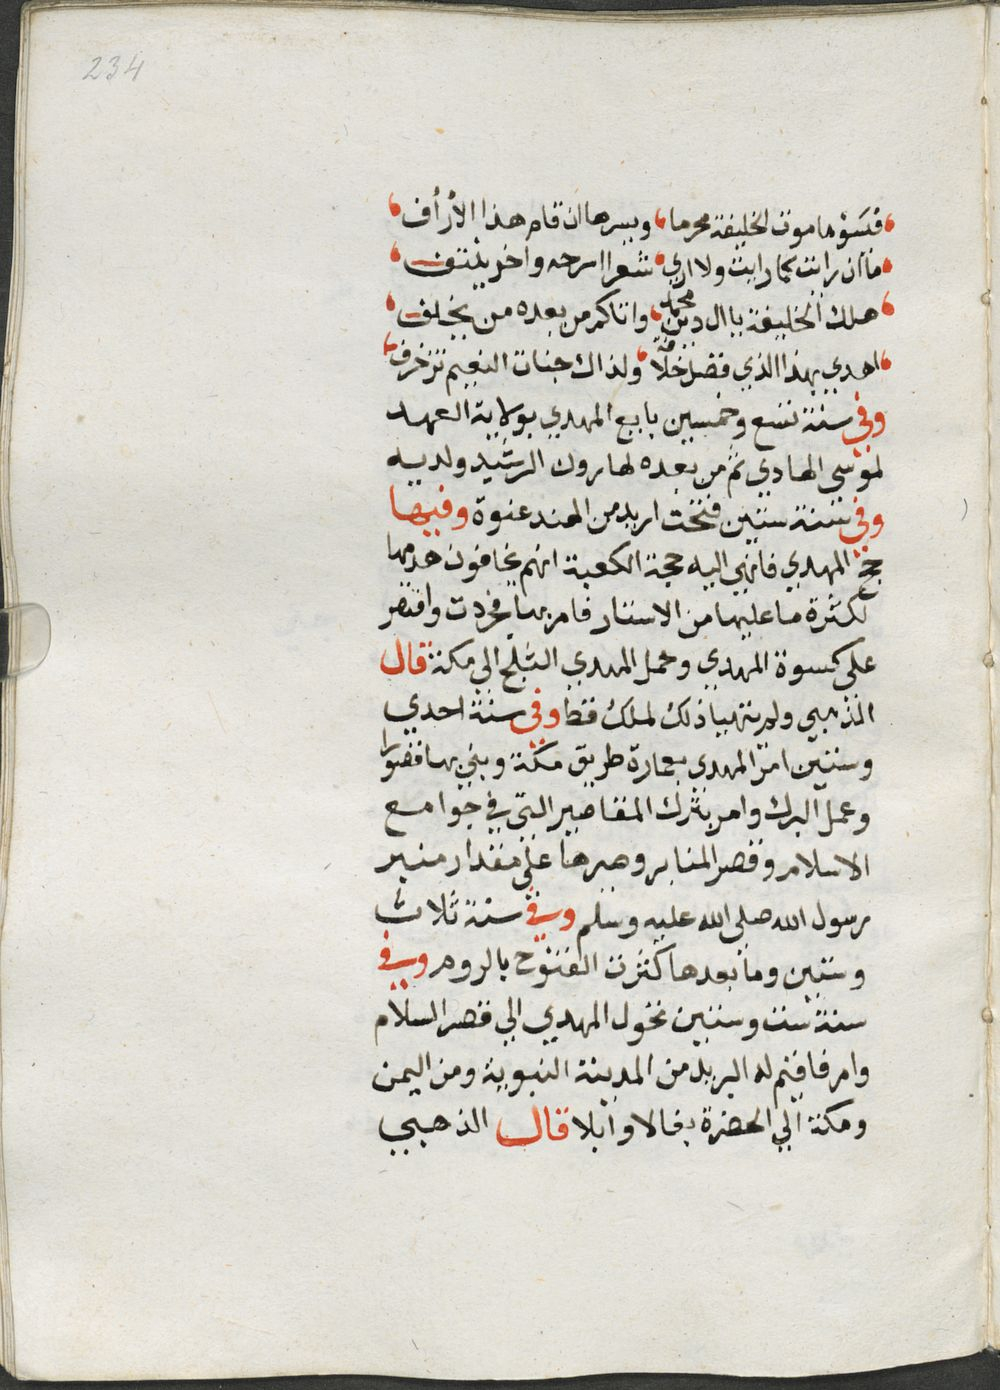 234
فتسؤها موت الخليفة محرما ، ويسرها ان قام هذا الأرأف
ما ان رايت كما رايت ولا اري ، شعرا اسرحه واخر ينتف
هلك الخليفة يا ال دين محمد ، واتاكم من بعده من يخلف
اهدي بهذا الذي فضل خلافة ، ولذاك جنات النعيم تزخرف
وفي سنة تسع وخمسين بايع المهدي بولاية العهد
لموسى الهادي ثم من بعده لهارون الرشيد ولديه
وفي سنة ستين فتحت اربد من الهند عنوة وفيها
حج المهدي فانهي اليه حجبة الكعبة انهم يخافون هدمها
لكثرة ما عليها من الاستار فامر بها فجردت واقتصر
على كسوة المهدي وحمل المهدي الثلج الى مكة قال
الذهبي ولم يتهيا ذلك لملك قط وفي سنة احدي
وستين امر المهدي بعمارة طريق مكة وبني بها قصورا
وعمل البرك وامر بترك المقاصير التي في جوامع
الاسلام وقصر المنابر وصيرها على مقدار منبر
رسول الله صلى الله عليه وسلم وفي سنة ثلاث
وستين وما بعدها كثرت الفتوح بالروم وفي
سنة ست وستين تحول المهدي الي قصر السلام
وامر فاقيم له البريد من المدينة النبوية ومن اليمن
ومكة الي الحضرة بغالا وابلا قال الذهبي